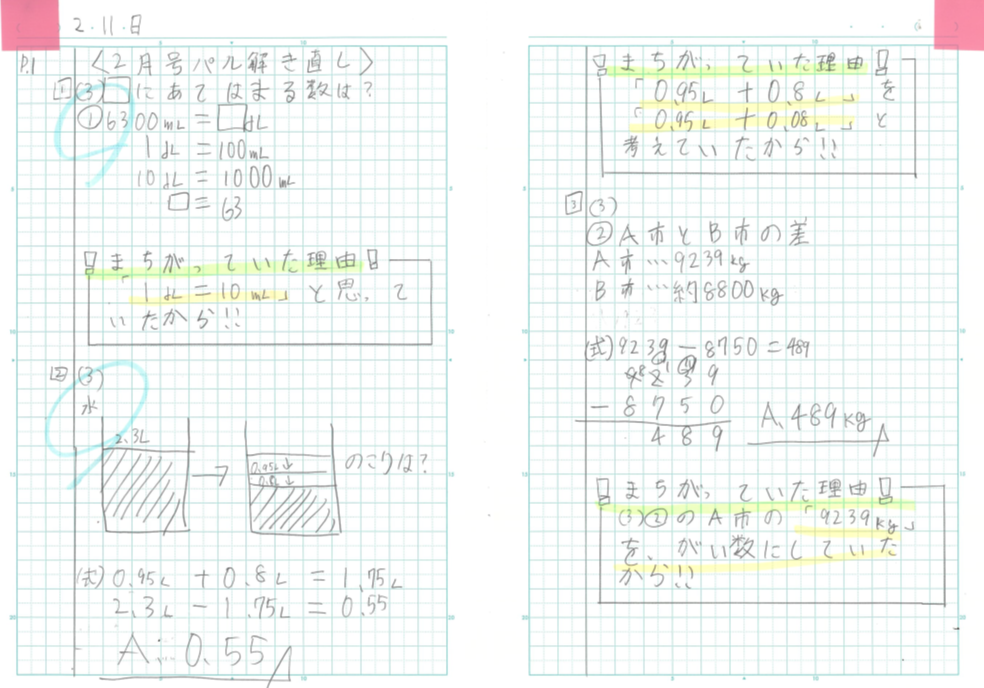 2.11.日
P.1
〈2月号パル解き直し〉
1 (3) □にあてはまる数は?
①6300mL = □dL
1dL = 100mL
10dL = 1000mL
□ = 63
まちがっていた理由
「1dL = 10mL」と思って
いたから!!
2 (3)
水
2.3L → 0.95L↓
のこりは?
(式) 0.95L + 0.8L = 1.75L
2.3L - 1.75L = 0.55
A: 0.55
まちがっていた理由
「0.95L + 0.8L」を
「0.95L + 0.08L」と
考えていたから!!
3 (3)
②A市とB市の差
A市…9239kg
B市…約8800kg
(式) 9239 - 8750 = 489
- 8750
489
A. 489kg
まちがっていた理由
(3)②のA市の「9239kg」
を、がい数にしていた
から!!